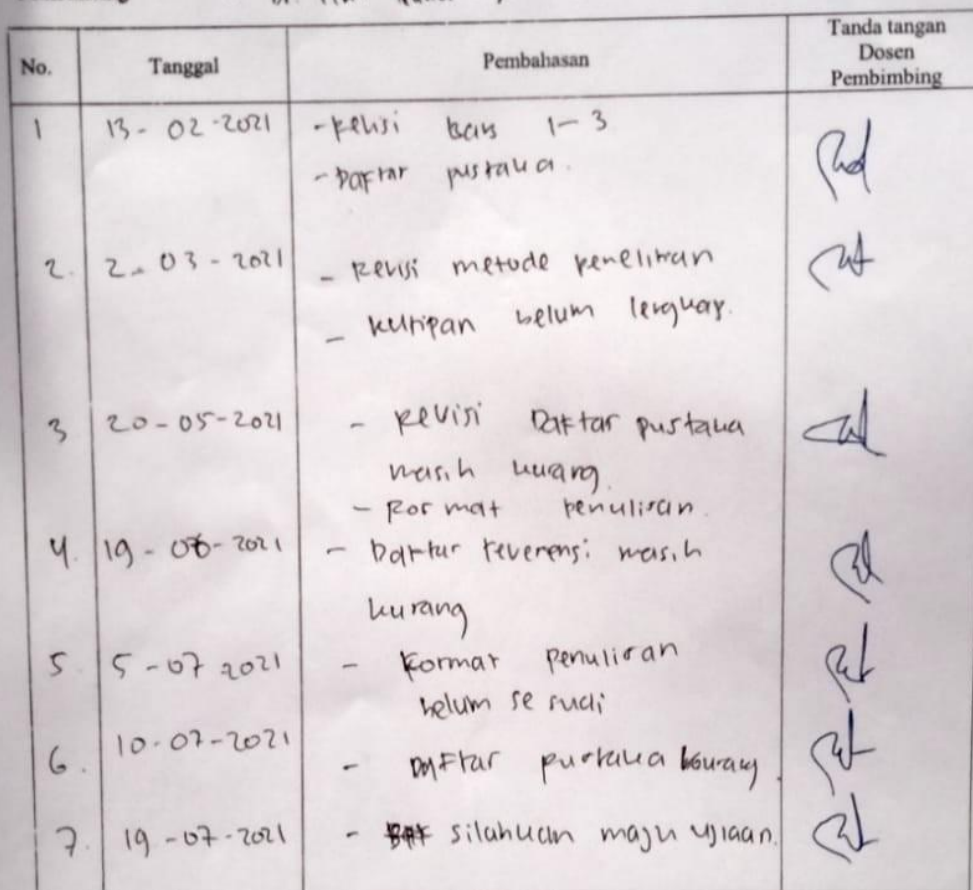 No. Tanggal Pembahasan Tanda tangan
Dosen
Pembimbing
1 13-02-2021 - Revisi bab 1-3
- Daftar pustaka.
2. 2-03-2021 - Revisi metode penelitian
- kutipan belum lengkap.
3 20-05-2021 - Revisi Daftar pustaka
masih kurang.
- Format penulisan.
4. 19-06-2021 - Daftar reverensi masih
kurang
5 5-07 2021 - Format penulisan
belum sesuai
6. 10-07-2021 - Daftar pustaka kurang
7. 19-07-2021 - silahkan maju ujiaan.